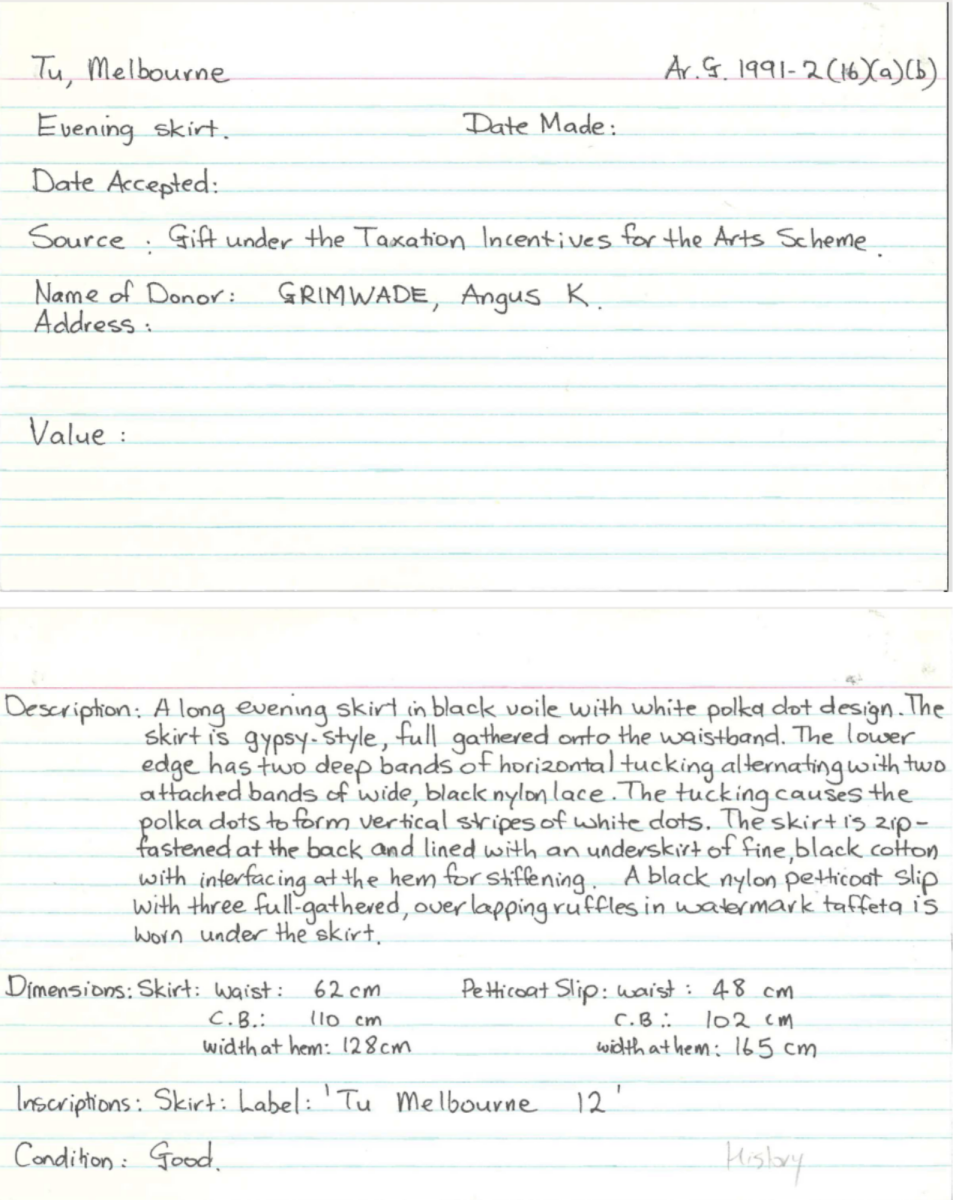 Tu, Melbourne Ar.G. 1991-2(16)(a)(b)
Evening skirt. Date Made:
Date Accepted:
Source : Gift under the Taxation Incentives for the Arts Scheme.
Name of Donor: GRIMWADE, Angus K.
Address:
Value :
Description: A long evening skirt in black voile with white polka dot design. The
skirt is gypsy-style, full gathered onto the waistband. The lower
edge has two deep bands of horizontal tucking alternating with two
attached bands of wide, black nylon lace. The tucking causes the
polka dots to form vertical stripes of white dots. The skirt is zip-
fastened at the back and lined with an underskirt of fine, black cotton
with interfacing at the hem for stiffening. A black nylon petticoat slip
with three full-gathered, overlapping ruffles in watermark taffeta is
worn under the skirt.
Dimensions: Skirt: waist: 62 cm Petticoat Slip: waist: 48 cm
C.B.: 110 cm C.B.: 102 cm
width at hem: 128cm width at hem: 165 cm
Inscriptions: Skirt: Label: 'Tu Melbourne 12'
Condition: Good. History